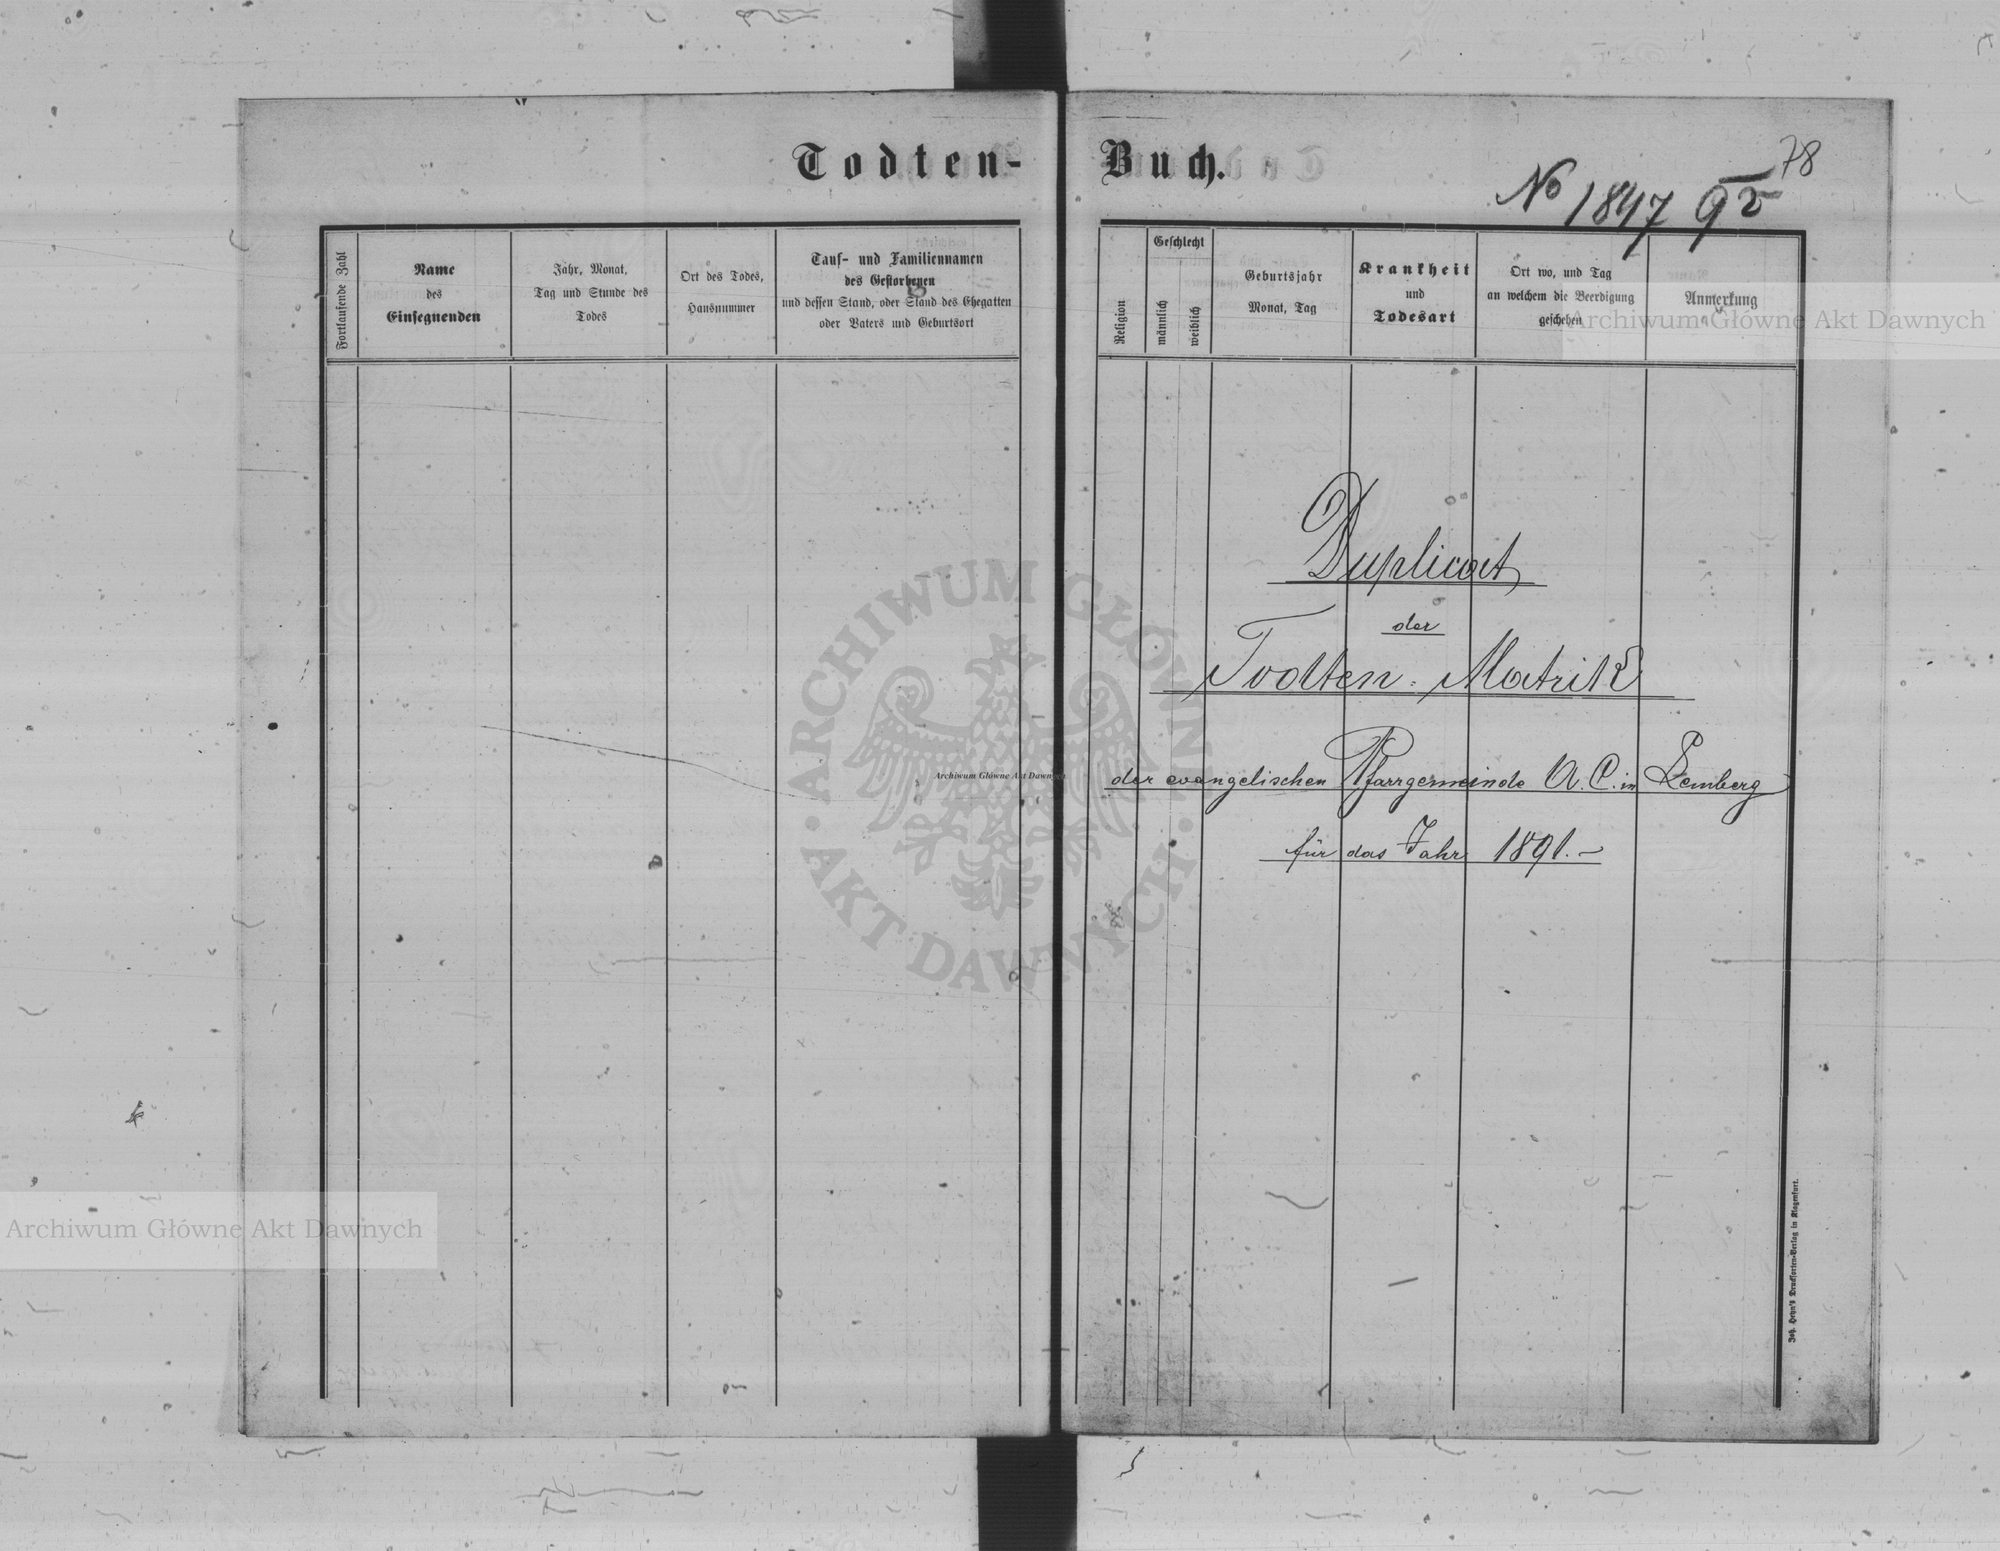 Todten-Buch.
78
No 1847 92
Fortlaufende Zahl
Name
des
Einsegnenden
Jahr, Monat,
Tag und Stunde des
Todes
Ort des Todes,
Hausnummer
Tauf- und Familiennamen
des Gestorbenen
und dessen Stand, oder Stand des Ehegatten
oder Vaters und Geburtsort
Religion
Geschlecht
männlich
weiblich
Geburtsjahr
Monat, Tag
Krankheit
und
Todesart
Ort wo, und Tag
an welchem die Beerdigung
geschehen
Anmerkung
Archiwum Główne Akt Dawnych
Duplicat
der
Todten-Matrik
der evangelischen Pfarrgemeinde A. C. in Lemberg
für das Jahr 1891.-
ARCHIWUM GŁÓWNE
AKT DAWNYCH
Archiwum Główne Akt Dawnych
Archiwum Główne Akt Dawnych
Joh. Heyn's Drucksorten-Verlag in Klagenfurt.